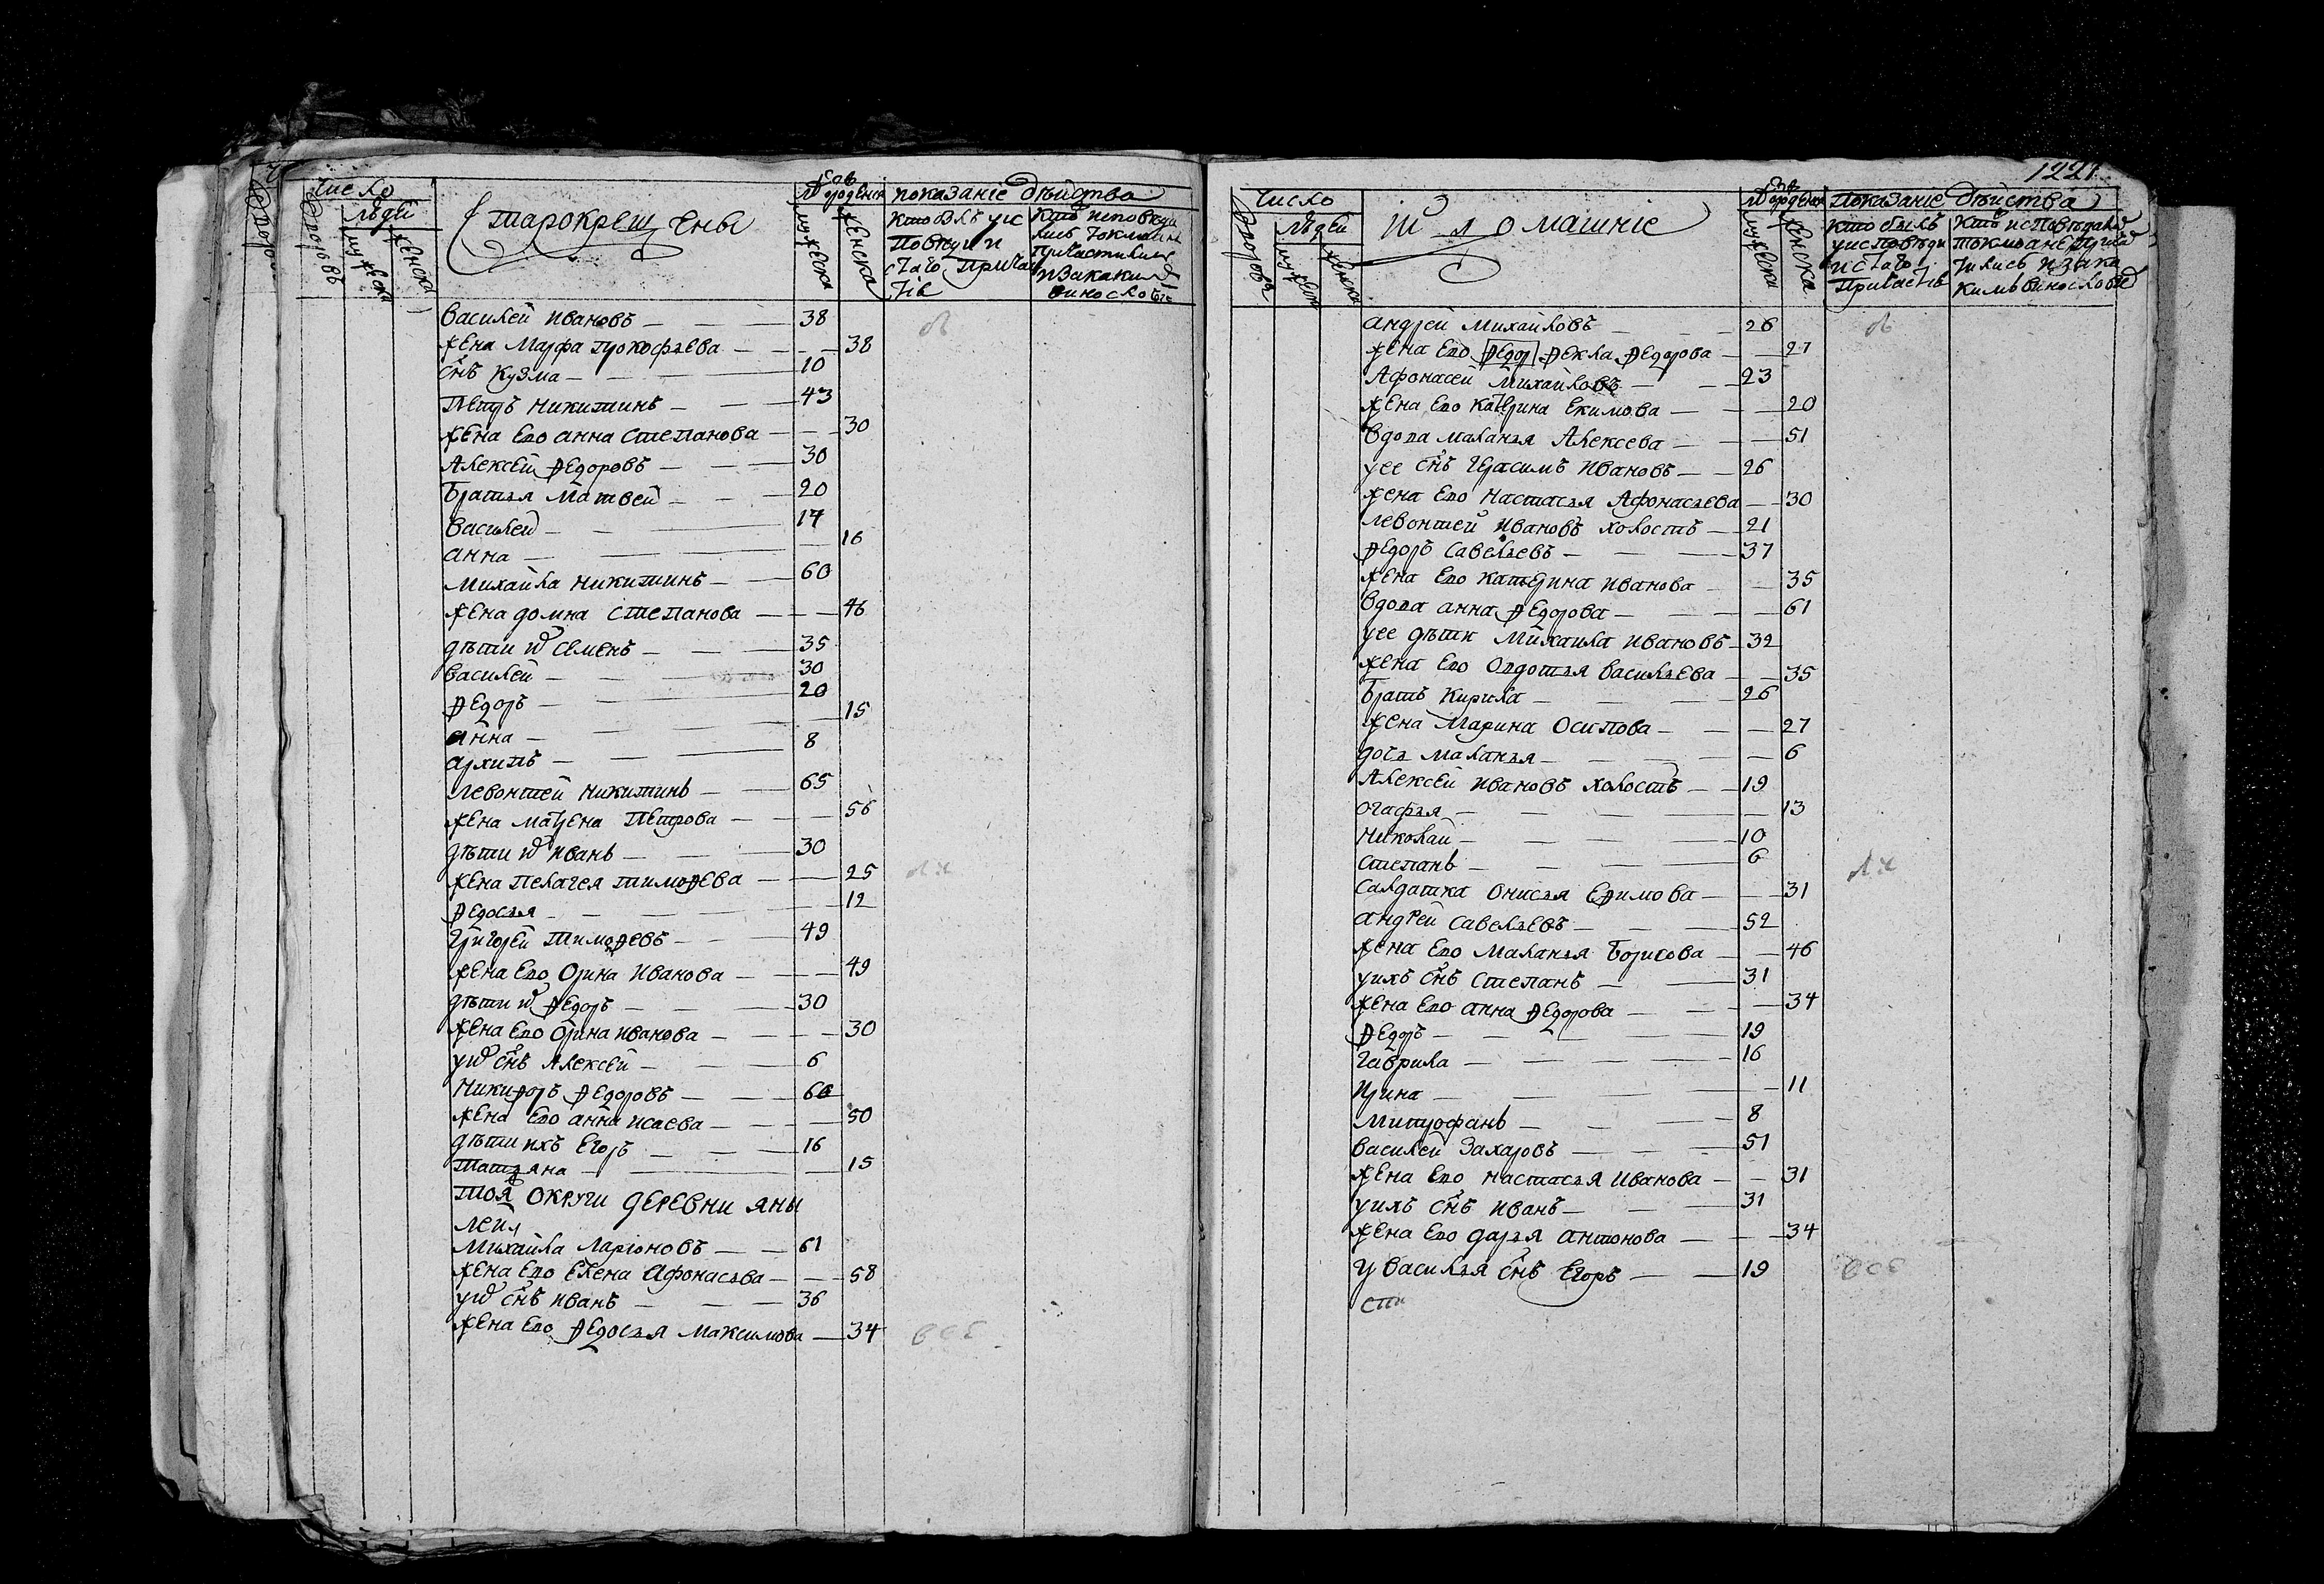 Число
Дворовъ
людей
мужеска
женска
Старокрещены
мужеска
женска
показаніе дѣиства
Василей Ивановъ — 38
жена Марфа Прокофьева — 38
снъ Кузма — 10
Петръ Никитинъ — 43
жена ево анна Степанова — 30
Алексѣй Ѳедоровъ — 30
Братья Матвей — 20
Василей — 17
анна — 16
Михайла Никитинъ — 60
жена домна Степанова — 46
дѣти и Семенъ — 35
Василей — 30
Ѳедоръ — 20
анна — 15
архипъ — 8
Левонтей Никитинъ — 65
жена Матрена Петрова — 56
дѣти и Иванъ — 30
жена Пелагея Тимоѳева — 25
Ѳедосья — 12
Григорей Тимоѳевъ — 49
жена ево Орина Иванова — 49
дѣти и Ѳедоръ — 30
жена ево Орина Иванова — 30
у и снъ Алексѣй — 6
Никиѳоръ Ѳедоровъ — 60
жена ево анна Исаева — 50
дѣти ихъ Егоръ — 16
Татьяна — 15
Тоя округи деревни яны
леи
Михайла Ларіоновъ — 61
жена ево Елена Афонасьва — 58
у и снъ Иванъ — 36
жена ево Ѳедосья Максимова — 34
все
1221
Число
Дворовъ
людей
мужеска
женска
ихъ домашніе
мужеска
женска
Показаніе дѣиства
кто былъ
у исповѣди
и стаго
Причастія
кто исповѣдался
токмо а не прича
тились и за ка
кимъ винословіем
андрей Михайловъ — 26
жена ево Ѳедор Ѳекла Ѳедорова — 27
Афонасей Михайловъ — 23
жена ево Катерина Екимова — 20
Вдова маланья Алексева — 51
у ее снъ Герасимъ Ивановъ — 26
жена ево Настасья Афонасьева — 30
Левонтей Ивановъ холостъ — 21
Ѳедоръ Савельевъ — 37
жена ево Катерина Иванова — 35
Вдова анна Ѳедорова — 61
у ее дѣти Михаила Ивановъ — 32
жена ево Овдотья Васильева — 35
Братъ Кирила — 26
жена Марина Осипова — 27
дочь Маланья — 6
Алексей Ивановъ холостъ — 19
огафья — 13
Николай — 10
Степанъ — 6
Салдатка Онисья Еѳимова — 31
андрей Савельевъ — 52
жена ево Маланья Борисова — 46
у ихъ снъ Степанъ — 31
жена ево анна Ѳедорова — 34
Ѳедоръ — 19
Гаврила — 16
Ирина — 11
Митрофанъ — 8
Василей Захаровъ — 51
жена ево Настасья Иванова — 31
у ихъ снъ Иванъ — 31
жена ево дарья антонова — 34
у Василья снъ Егоръ — 19
все